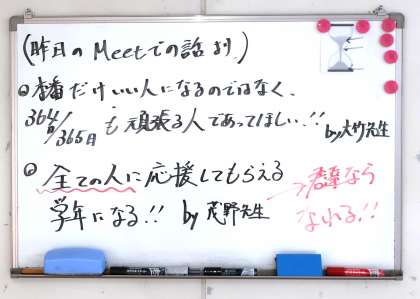 (昨日のMeetでの話より)
①本番だけいい人になるのではなく、
364日/365日も頑張る人であってほしい!! by大竹先生
②全ての人に応援してもらえる
学年になる!! by茂野先生
→君達なら
なれる!!